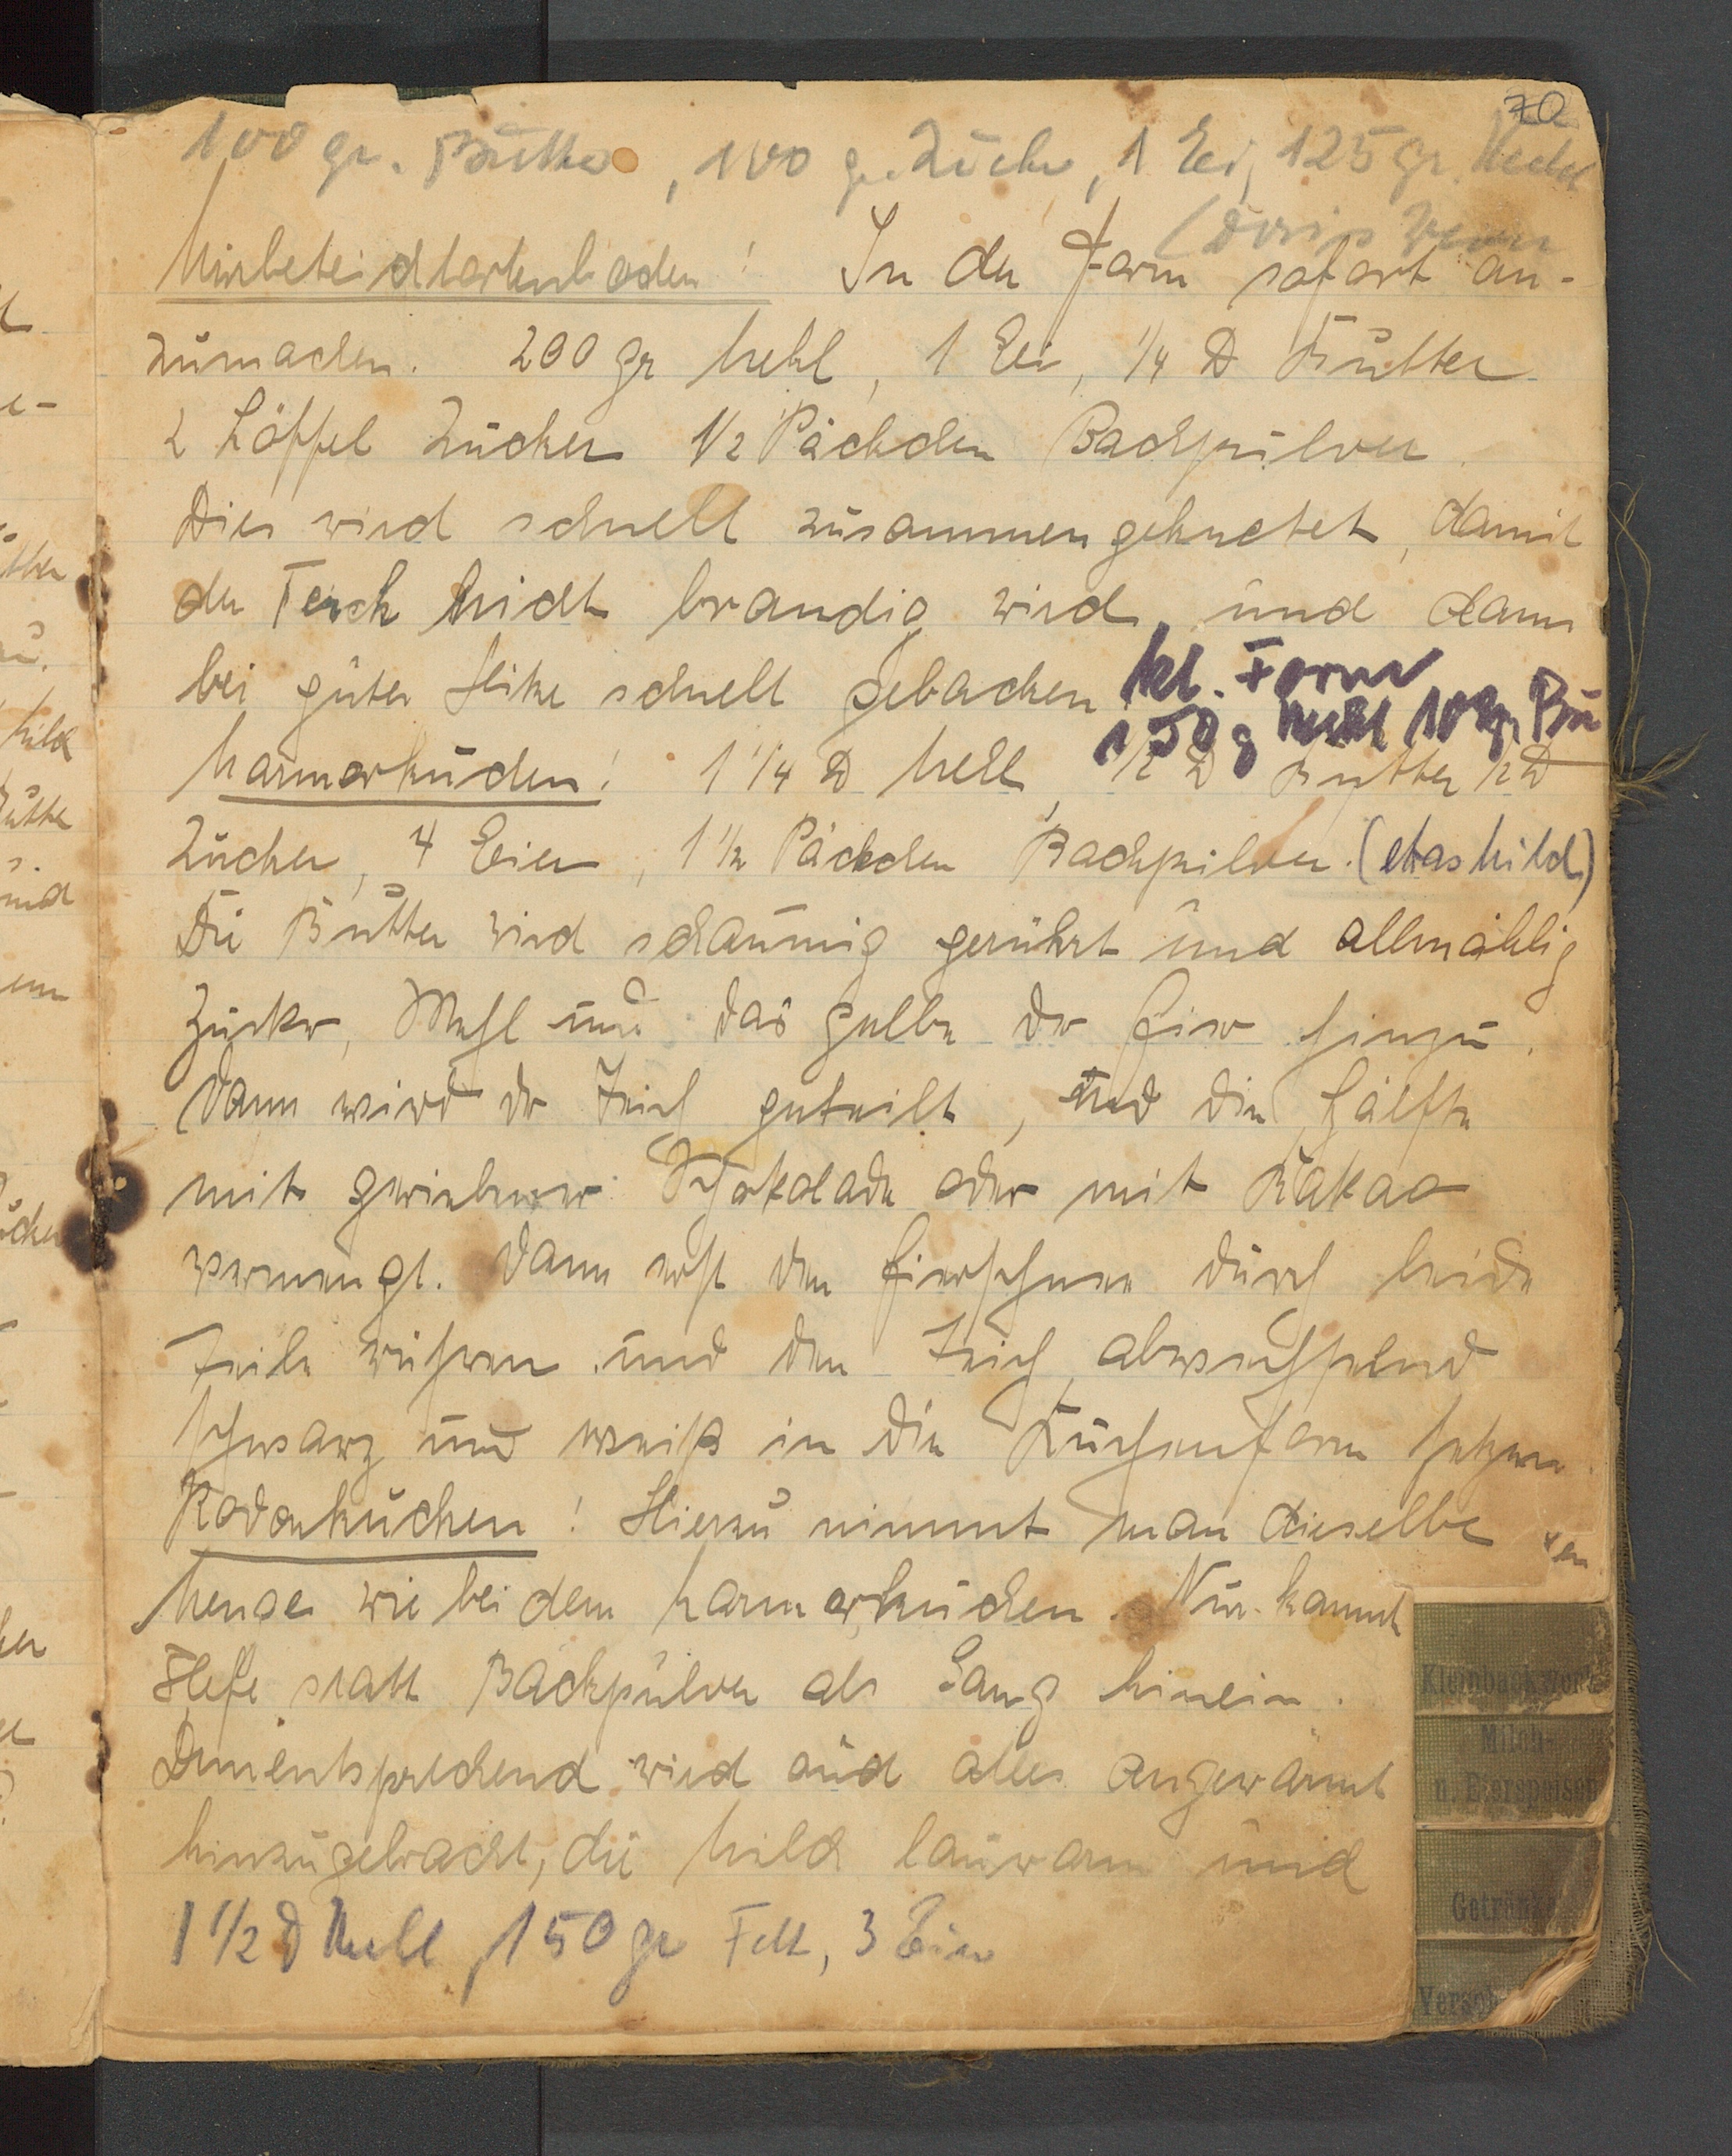 70
100 gr. Butter, 100 gr. Zucker, 1 Ei, 125 gr. Mehl
Mürbeteichtortenboden! In der Form sofort an-
zumachen. 200 gr Mehl, 1 Ei, 1/4 ℔ Butter
2 Löffel Zucker 1/2 Päckchen Backpulver.
Dies wird schnell zusammengeknetet, damit
der Teich nicht brandig wird, und dann
bei guter Hitze schnell gebacken.
kl. Form
150 g Mehl 100 gr Bu
Marmorkuchen! 1 1/4 ℔ Mehl, 1/2 ℔ Butter 1/2 ℔
Zucker, 4 Eier, 1 1/2 Päckchen Backpulver. (etwas Milch)
Die Butter wird schaumig gerührt und allmählig
Zucker, Mehl und das gelbe der Eier hinzu.
Dann wird der Teich geteilt, und die Hälfte
mit geriebener Schokolade oder mit Kakao
vermengt. Dann erst den Eierschnee durch beide
Teile rühren und den Teich abwechselnd
schwarz und weiß in die Kuchenform setzen.
Rodonkuchen! Hierzu nimmt man dieselbe
Menge wie bei dem Marmorkuchen. Nur kommt
Hefe statt Backpulver als Gang hinein.
Dementsprechend wird auch alles angewärmt
hinzugebracht, die Milch lauwarm und
1 1/2 ℔ Mehl, 150 gr Fett, 3 Eier
Kleinbackwerk
Milch-
u. Eierspeisen
Getränke